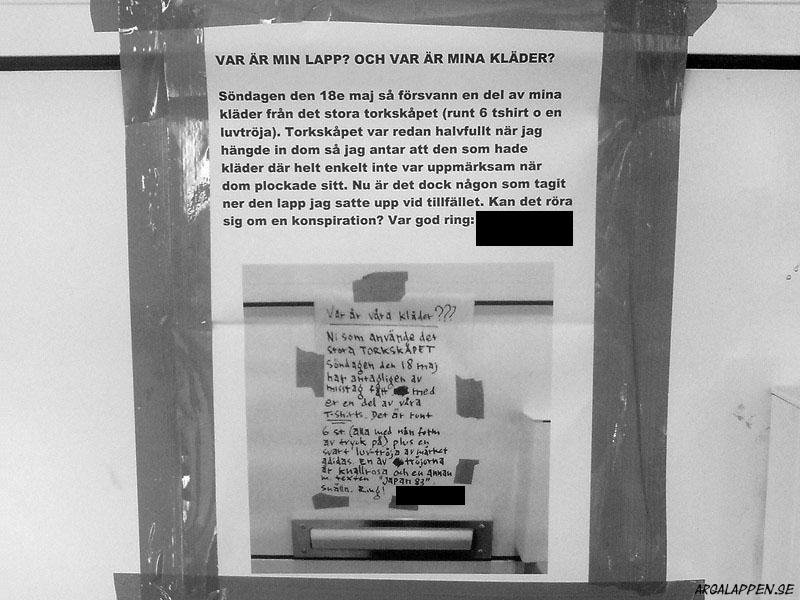 VAR ÄR MIN LAPP? OCH VAR ÄR MINA KLÄDER?
Söndagen den 18e maj så försvann en del av mina
kläder från det stora torkskåpet (runt 6 tshirt o en
luvtröja). Torkskåpet var redan halvfullt när jag
hängde in dom så jag antar att den som hade
kläder där helt enkelt inte var uppmärksam när
dom plockade sitt. Nu är det dock någon som tagit
ner den lapp jag satte upp vid tillfället. Kan det röra
sig om en konspiration? Var god ring:
Var är våra kläder???
Ni som använde det
stora TORKSKÅPET
Söndagen den 18 maj
har antagligen av
misstag fått med
er en del av våra
T-shirts. Det är runt
6 st (alla med nån form
av tryck på) plus en
svart luvtröja av märket
adidas. En av tröjorna
är knallrosa och en annan
m. texten "JAPAN 83".
Snälla. Ring!
ARGALAPPEN.SE